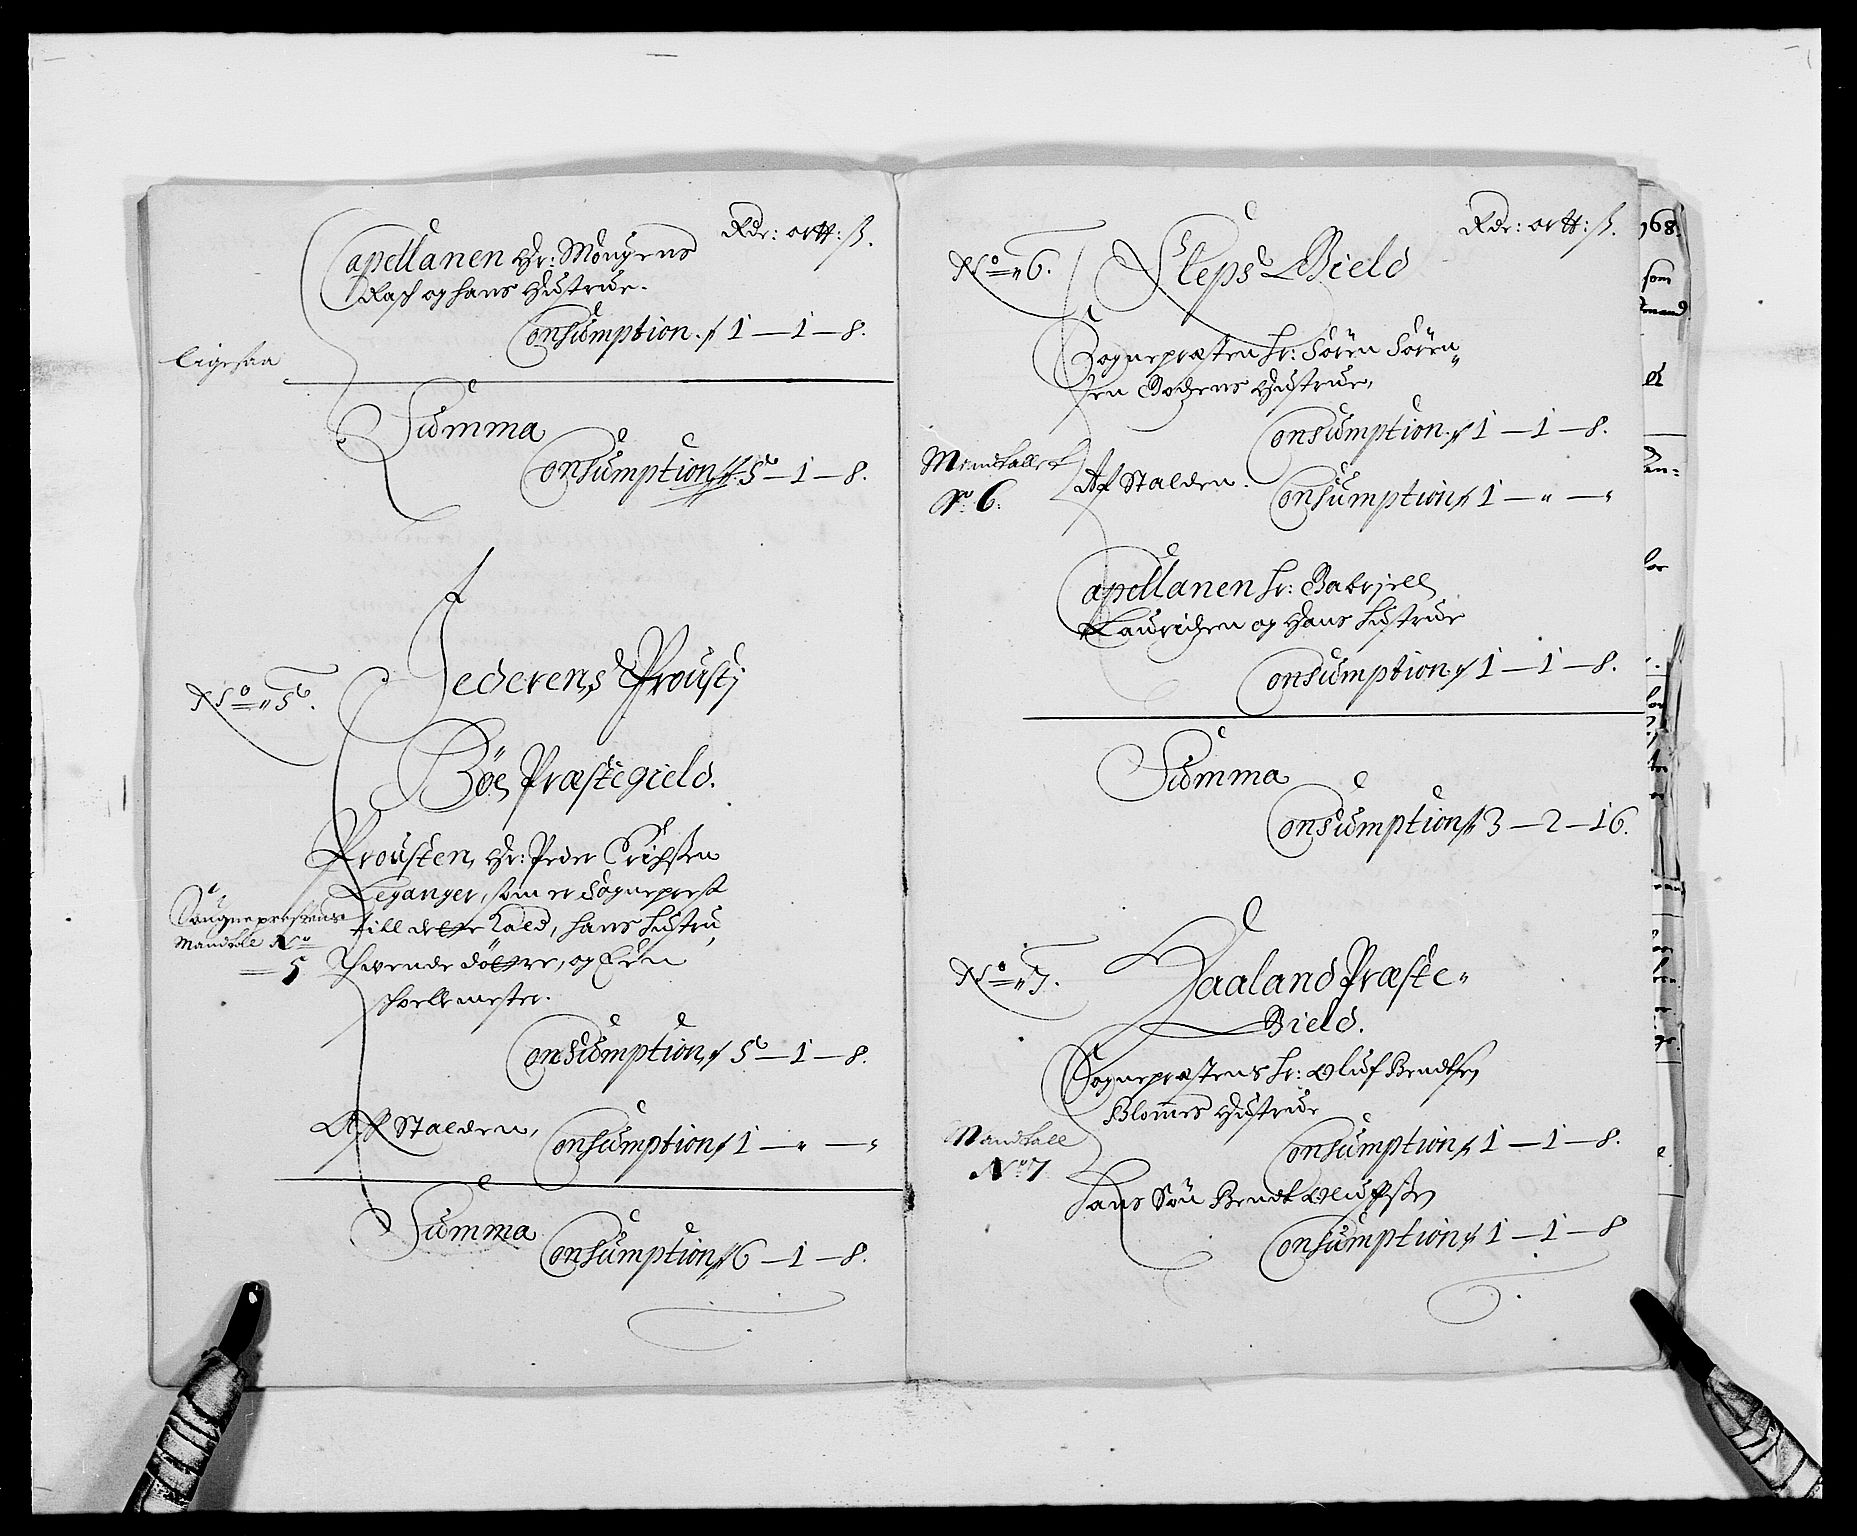 Rdr: ortt: ß.
Capellanen Hr: Mougens
Rasch og hans Hustrue.
Consumption 1 — 1 — 8.
ligesaa
Summa
Consumption 5 — 1 — 8.
No 5.
Jederens Prousti
Böe Præstegield.
Prousten, Hr: Peder Erichsen
Leganger, som er Sogneprest
till dette Kald, hans hustru,
Thvende döttre, og Een
schoellemester.
Sougneprestens
Mandtall No
5
Consumption 5 — 1 — 8.
Aff Stalden,
Consumption 1 — " — "
Summa
Consumption 6 — 1 — 8.
Rdr: ortt: ß.
No 6.
Kleps Gield
Sognepræsten hr: Sören Sören-
sen Godzens Hustrue,
Consumption 1 — 1 — 8.
Mandtallet
No 6.
Af Stalden.
Consumption 1 — " — "
Capellanen hr: Gabrjell
Lauridzen og Hans hustrue
Consumption 1 — 1 — 8.
Summa
Consumption 3 — 2 — 16.
No 7.
Haaland Præste-
Gield.
Sognepræstens hr: Oluf Bendtsen
Blommes Hustrue
Consumption 1 — 1 — 8.
Mandtall
No 7
hans Sön Bendt Oluffsen
Consumption 1 — 1 — 8
168.
som